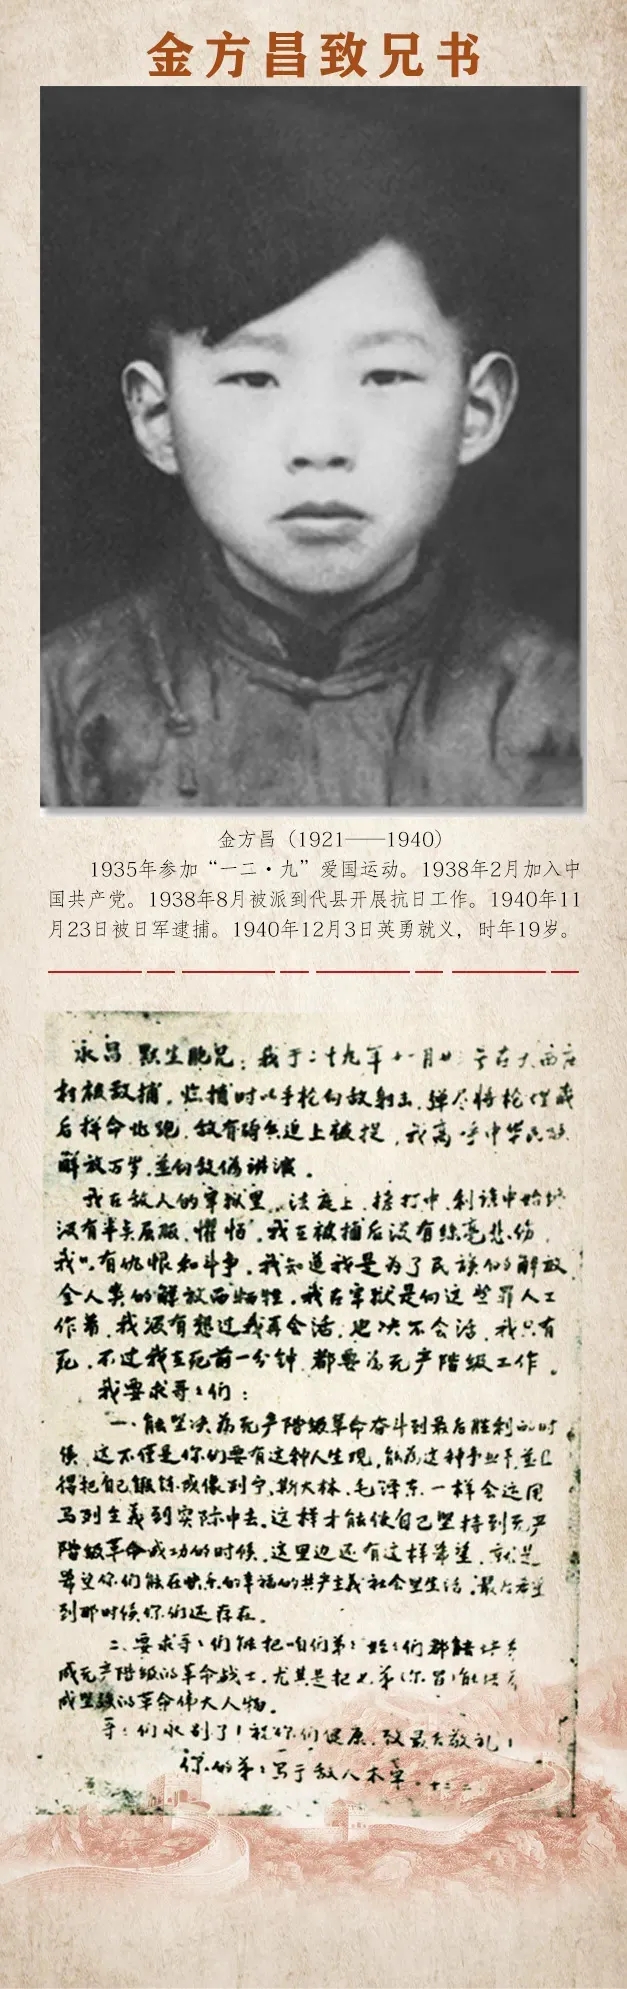 金方昌致兄书
金方昌（1921——1940）
1935年参加“一二·九”爱国运动。1938年2月加入中
国共产党。1938年8月被派到代县开展抗日工作。1940年11
月23日被日军逮捕。1940年12月3日英勇就义，时年19岁。
永昌 默生胞兄：我于二十九年十一月廿 号在大西庄
村被敌捕，临捕时以手枪向敌射击，弹尽将枪埋藏
后拼命地跑，敌有骑兵追上被捉，我高呼中华民族
解放万岁，並向敌伪讲演。
我在敌人的牢狱里、法庭上、拷打中、利诱中始终
没有半点屈服、惧怕，我在被捕后没有丝毫悲伤，
我只有仇恨和斗争，我知道我是为了民族的解放
全人类的解放而牺牲，我在牢狱是向这些罪人工
作着，我没有想过我再会活，也决不会活，我只有
死，不过我在死前一分钟，都要为无产阶级工作。
我要求哥：们：
一、能坚决为无产阶级革命奋斗到最后胜利的时
候，这不仅是你们要有这种人生观，能为这种事业干，並
得把自己锻炼成像列宁、斯大林、毛泽东一样会运用
马列主義到实际中去，这样才能使自己坚持到无产
阶级革命成功的时候，这里边还有这样希望，就是
希望你们能在快乐的幸福的共产主義社会里生活，最后希望
到那时候你们还存在。
二、要求哥：们能把咱们弟：姪：们都能培养
成无产阶级的革命战士，尤其是把 弟 能培养
成坚毅的革命伟大人物。
哥：们永别了！祝你们健康，致最后敬礼！
你的弟：写于敌人木牢